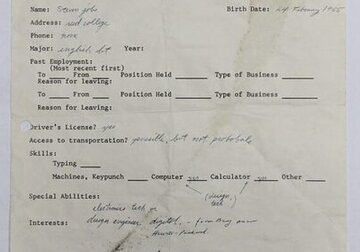 Name: Steven jobs Birth Date: 24 February 1955
Address: reed college
Phone: none
Major: english lit Year:
Past Employment:
(Most recent first)
To From Position Held Type of Business
Reason for leaving:
To From Position Held Type of Business
Reason for leaving:
Driver's License? yes
Access to transportation? possible, but not probable
Skills:
Typing
Machines, Keypunch Computer yes Calculator yes Other
(design, tech)
Special Abilities:
electronics tech or
Interests: design engineer. digital. — from Bay
Hewitt-Packard